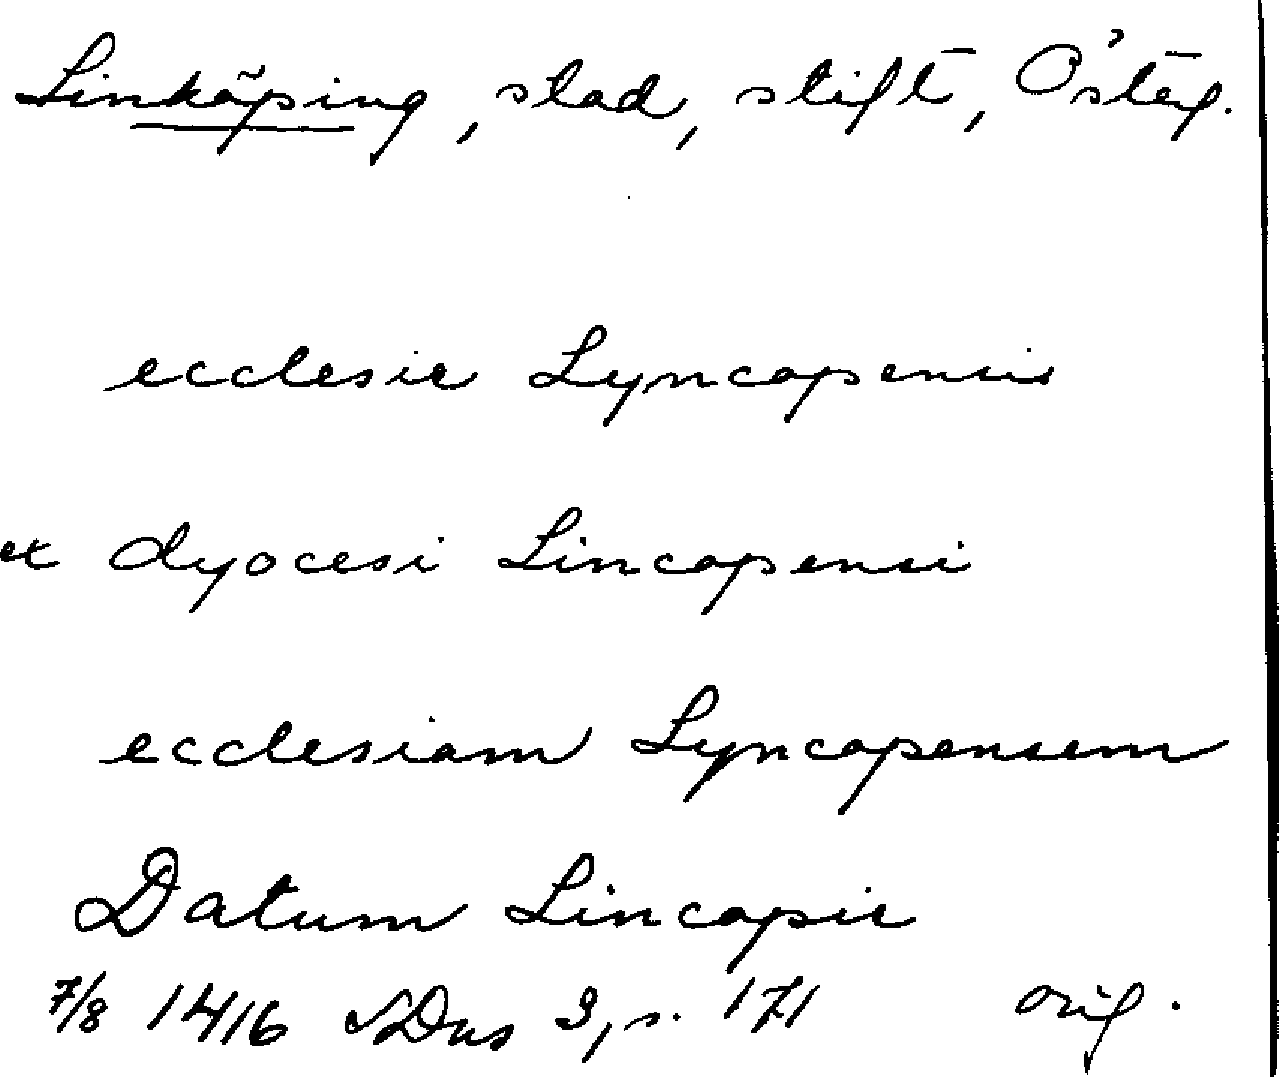 Linköping, stad, stift, Österg.
ecclesie Lyncopensis
ex dyocesi Lincopensi
ecclesiam Lyncopensem
Datum Lincopie
7/8 1416 SDns 3, s. 171 orig.